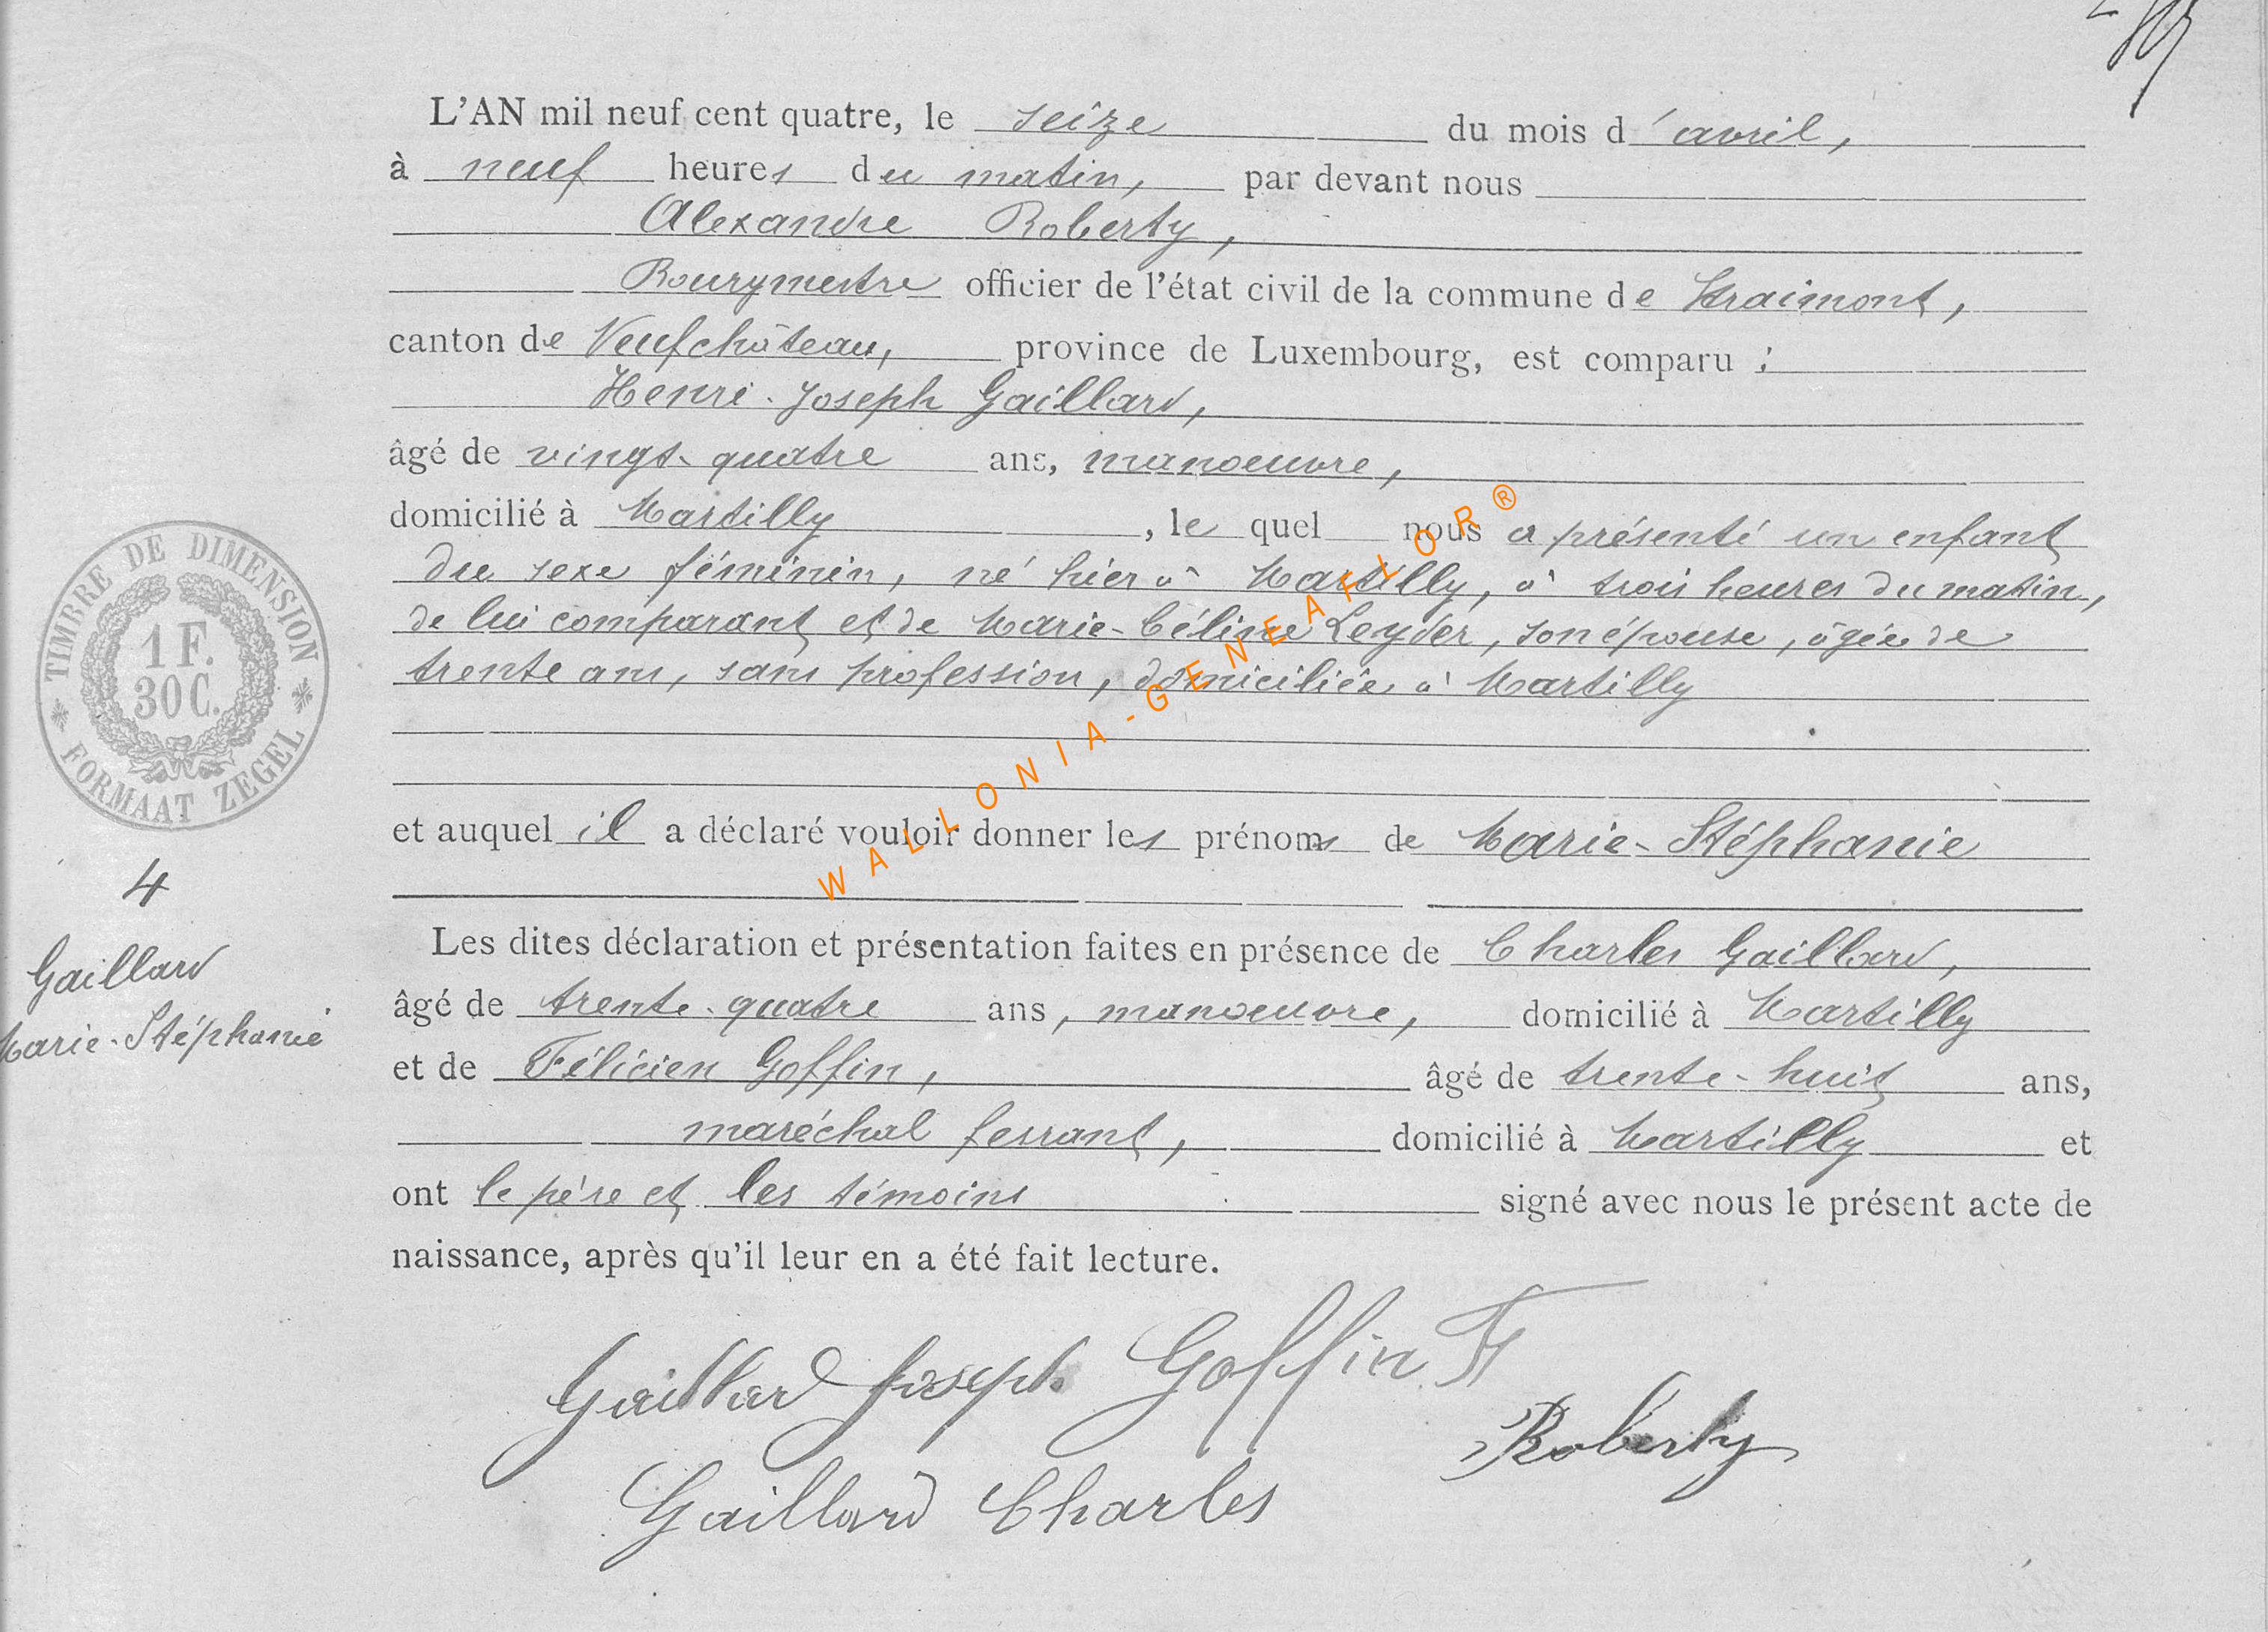 L'AN mil neuf cent quatre, le seize du mois d'avril,
à neuf heures du matin, par devant nous
Alexandre Roberty,
Bourgmestre officier de l'état civil de la commune de Straimont,
canton de Neufchâteau, province de Luxembourg, est comparu :
Henri-Joseph Gaillard,
âgé de vingt-quatre ans, manoeuvre,
domicilié à Martilly, le quel nous a présenté un enfant
du sexe féminin, né hier à Martilly, à trois heures du matin,
de lui comparant et de Marie-Céline Leyder, son épouse, âgée de
trente ans, sans profession, domiciliée à Martilly
et auquel il a déclaré vouloir donner les prénoms de Marie-Stéphanie
Les dites déclaration et présentation faites en présence de Charles Gaillard,
âgé de trente-quatre ans, manoeuvre, domicilié à Martilly
et de Félicien Goffin, âgé de trente-huit ans,
maréchal ferrant, domicilié à Martilly et
ont le père et les témoins signé avec nous le présent acte de
naissance, après qu'il leur en a été fait lecture.
Gaillard Joseph Goffin F
Roberty
Gaillard Charles
TIMBRE DE DIMENSION
1 F.
30 C.
FORMAAT ZEGEL
4
Gaillard
Marie-Stéphanie
WALLONIA-GENEAFLOR®